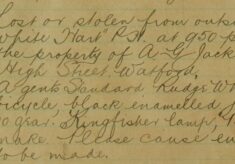 Lost or stolen from outs
White Hart P.H. at 9.50 p
the property of A-G Jack
High Street, Watford,
A gents Standard Rudge W
bicycle, black enamelled
0 gear. Kingfisher lamp,
make. Please cause en
to be made.